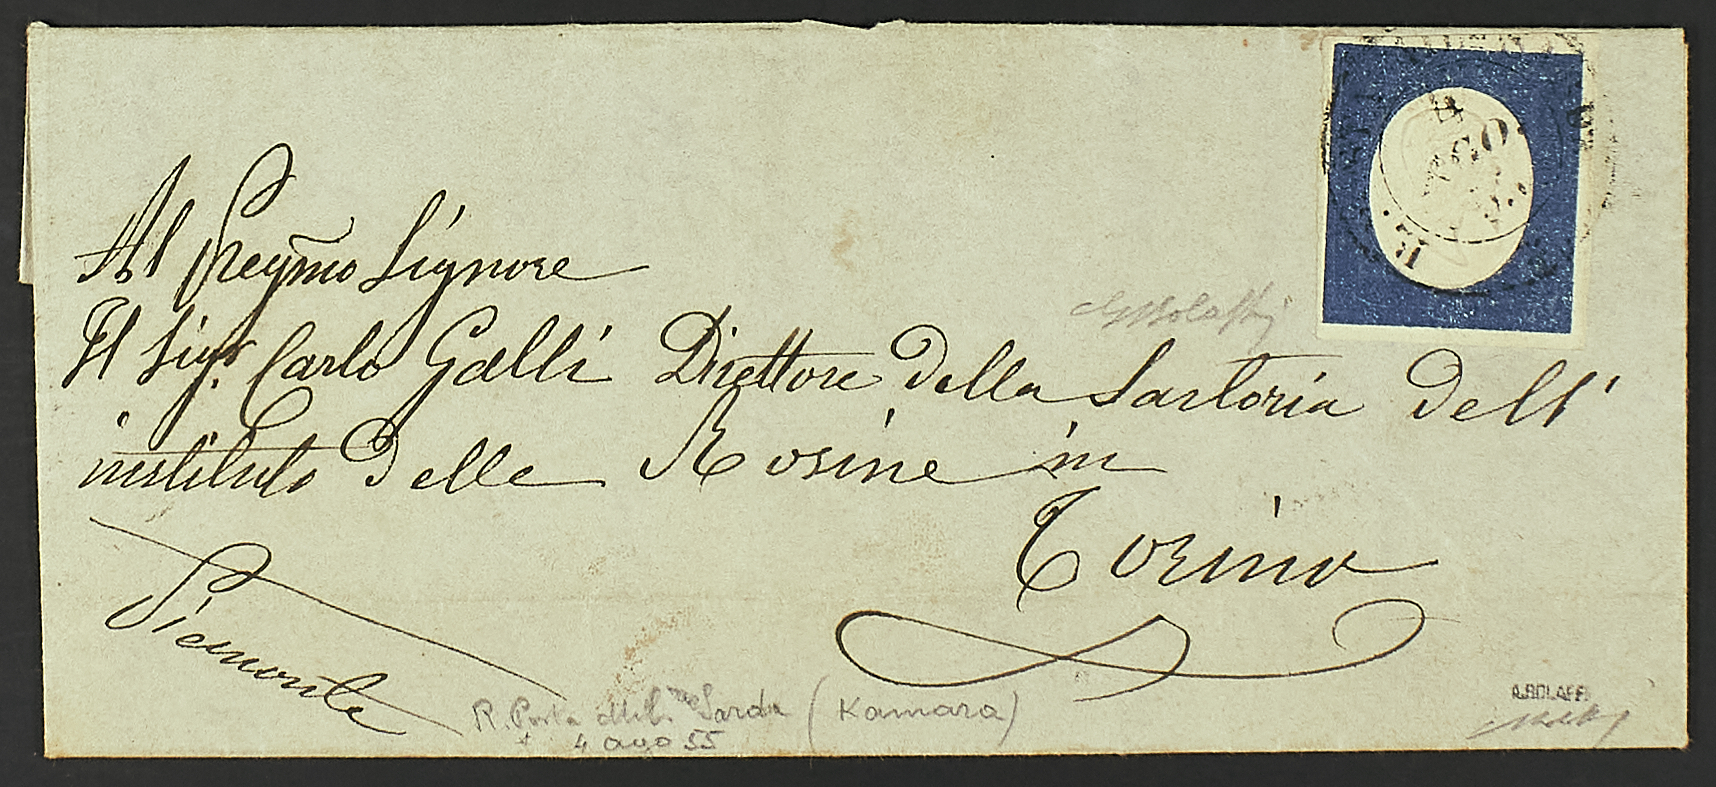 4
AGO.
55
Al Pregmo Signore
Il Sigr. Carlo Galli Direttore Della Sartoria Dell'
instituto Delle Rosine in
Torino
Piemonte
R. Posta Milre Sarda (Kamara)
4 ago 55
A. BOLAFFI